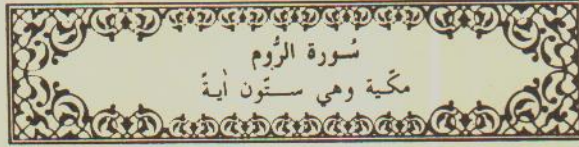 سُورة الرُّوم
مكّية وهي ســتّون أيـةً